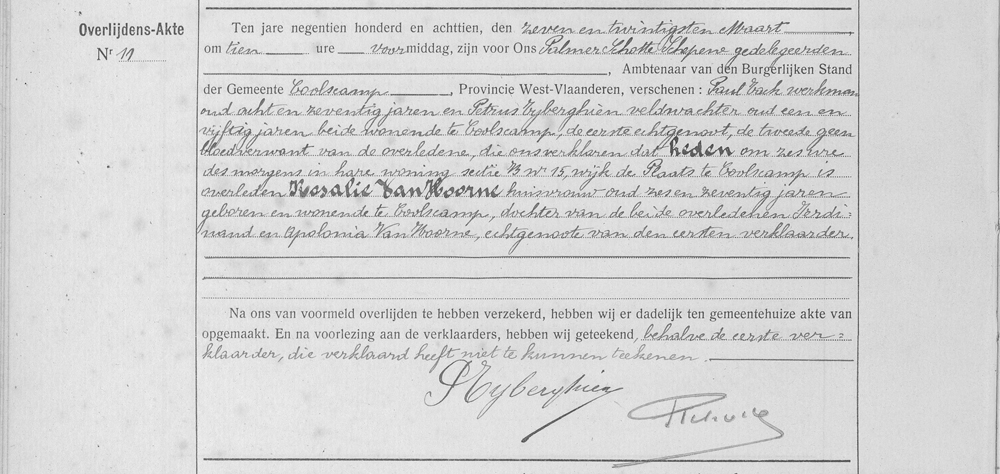 Overlijdens-Akte
Nr 11
Ten jare negentien honderd en achttien, den zeven en twintigsten Maart
om tien ure voormiddag, zijn voor Ons Palmer Schotte Schepene gedelegeerden
, Ambtenaar van den Burgerlijken Stand
der Gemeente Coolscamp, Provincie West-Vlaanderen, verschenen : Paul Tack werkman
oud acht en zeventig jaren en Petrus Eyberghien veldwachter oud een en
vijftig jaren beide wonende te Coolscamp, de eerste echtgenoot, de tweede geen
bloedverwant van de overledene, die ons verklaren dat heden om zes ure
des morgens in hare woning sectie B nr 15, wijk de Plaats te Coolscamp is
overleden Rosalie Van Hoorne huisvrouw oud zes en zeventig jaren
geboren en wonende te Coolscamp, dochter van de beide overledenen Ferdi=
nand en Apolonia Van Hoorne, echtgenoote van den eersten verklaarder.
Na ons van voormeld overlijden te hebben verzekerd, hebben wij er dadelijk ten gemeentehuize akte van
opgemaakt. En na voorlezing aan de verklaarders, hebben wij geteekend, behalve de eerste ver=
klaarder, die verklaard heeft niet te kunnen teekenen.
P Eyberghien